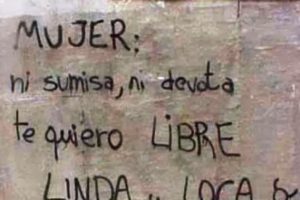 MUJER:
ni sumisa, ni devota
te quiero LIBRE
LINDA y LOCA